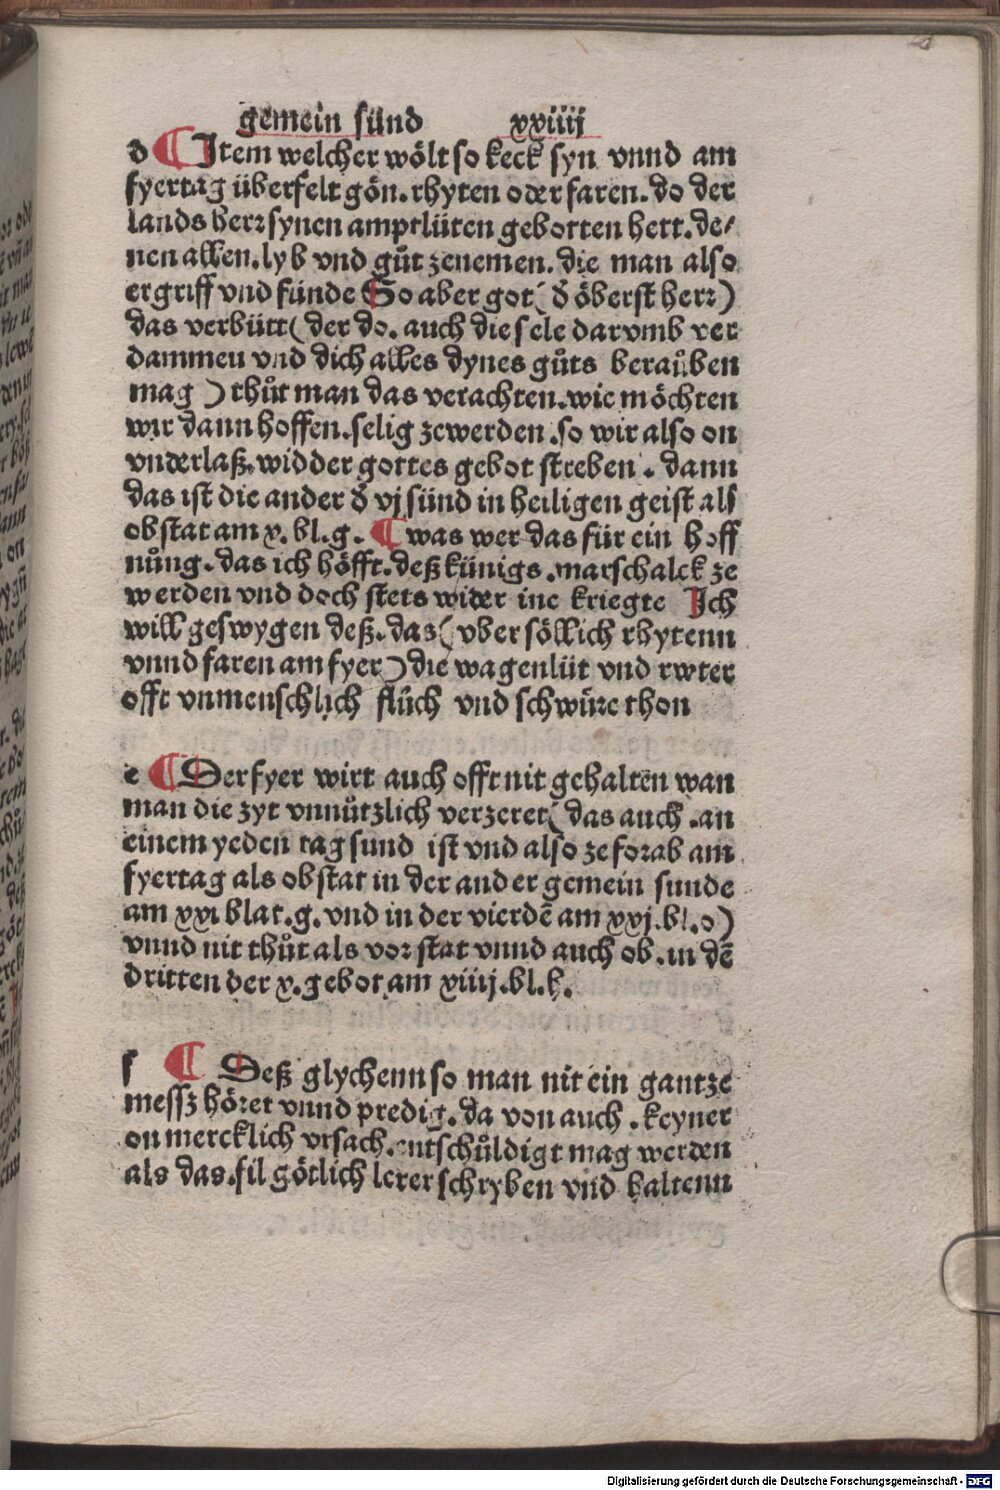 gemein sünd xxiiij
d ¶ Item welcher wölt so keck syn vnnd am
fyertag überfelt gön. rhyten oder faren. do der
lands herr synen amptlüten gebotten hett. de/
nen allen. lyb vnd gůt zenemen. die man also
ergriff vnd fünde So aber got ( d̕ öberst herr )
das verbütt ( der do. auch die sele darvmb ver
dammen vnd dich alles dynes gůts beraůben
mag ) thůt man das verachten. wie möchten
wir dann hoffen. selig zewerden. so wir also on
vnderlaß. widder gottes gebot streben. dann
das ist die ander d̕ vj sünd in heiligen geist als
obstat am x. bl. g. ¶ was wer das für ein hoff
nůng. das ich höfft. deß künigs. marschalck ze
werden vnd doch stets wider ine kriegte Ich
will geswygen deß. das ( vber söllich rhytenn
vnnd faren am fyer ) die wagenlüt vnd rwter
offt vnmenschlich flůch vnd schwüre thon
e ¶ Der fyer wirt auch offt nit gehaltē wan
man die zyt vnnůtzlich verzeret ( das auch. an
einem yeden tag sund ist vnd also ze forab am
fyertag als obstat in der ander gemein sunde
am xxi blat. g. vnd in der vierdē am xxj. bl. o )
vnnd nit thůt als vor stat vnnd auch ob. in dē
dritten der x. gebot am xiiij. bl. h.
f ¶ Deß glychenn so man nit ein gantze
messz höret vnnd predig. da von auch. keyner
on mercklich vrsach. entschůldigt mag werden
als das. fil götlich lerer schryben vnd haltenn
Digitalisierung gefördert durch die Deutsche Forschungsgemeinschaft - DFG